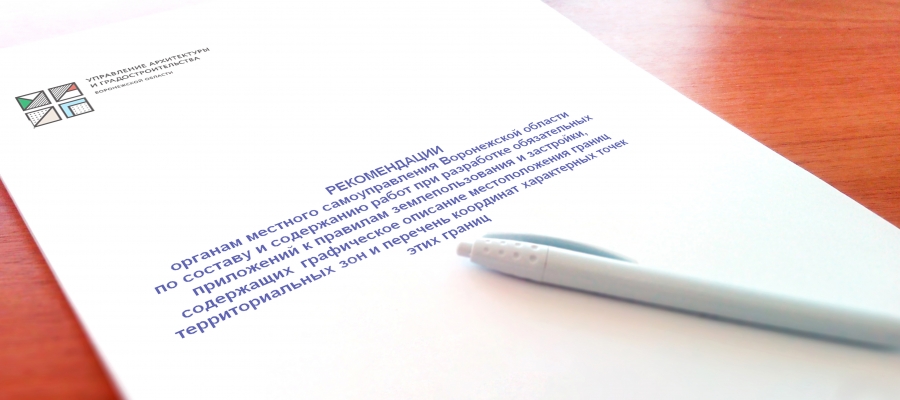 УПРАВЛЕНИЕ АРХИТЕКТУРЫ
И ГРАДОСТРОИТЕЛЬСТВА
ВОРОНЕЖСКОЙ ОБЛАСТИ
РЕКОМЕНДАЦИИ
органам местного самоуправления Воронежской области
по составу и содержанию работ при разработке обязательных
приложений к правилам землепользования и застройки,
содержащих графическое описание местоположения границ
территориальных зон и перечень координат характерных точек
этих границ